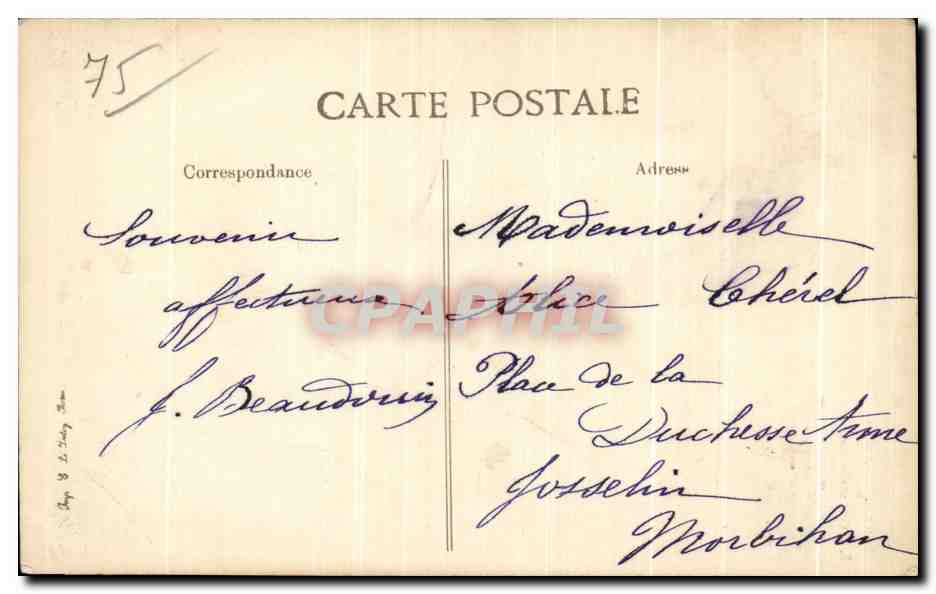 75
CARTE POSTALE
Correspondance
Adress
Souvenir
affectueux.
J. Beaudouin
Mademoiselle
Alice Chérel
Place de la
Duchesse Anne
Josselin
Morbihan
CPAPHIL